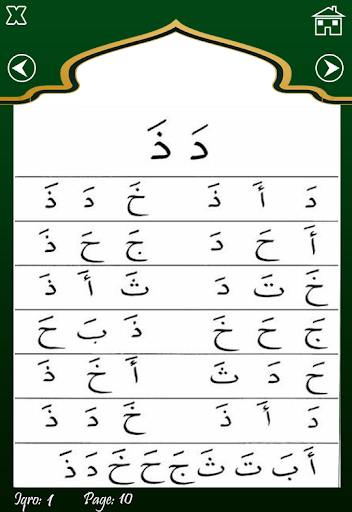 دَ ذَ
دَ أَ ذَ خَ دَ ذَ
أَ حَ دَ جَ حَ ذَ
خَ تَ دَ ثَ أَ ذَ
جَ حَ خَ ذَ بَ حَ
حَ دَ ثَ أَ خَ ذَ
دَ أَ ذَ خَ دَ ذَ
أَ بَ تَ ثَ جَ حَ خَ دَ ذَ
Iqro: 1 Page: 10